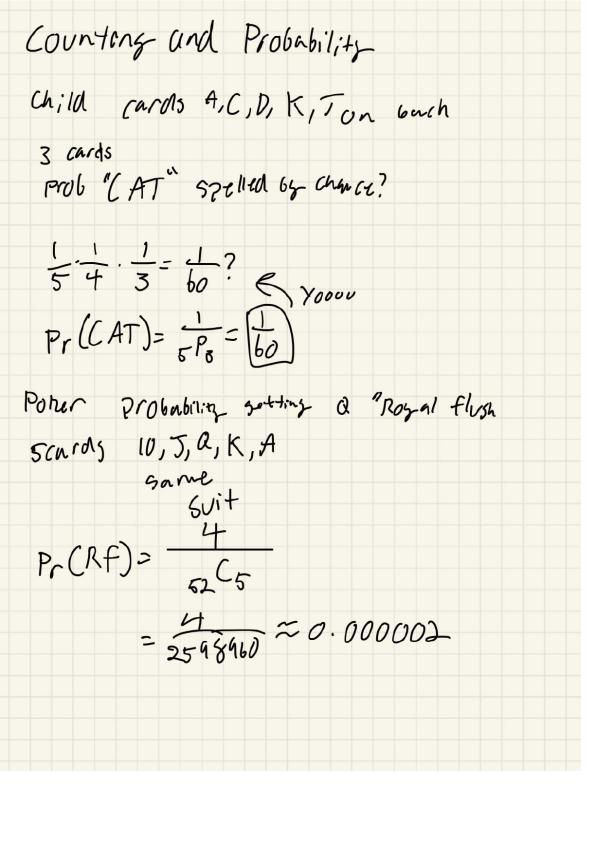 Counting and Probability
Child cards A, C, D, K, T on each
3 cards
prob "CAT" spelled by chance?
1/5 · 1/4 · 1/3 = 1/60 ?
Yoooo
Pr(CAT) = 1/₅P₃ = 1/60
Poker probability getting a "Royal flush
5 cards 10, J, Q, K, A
same
suit
Pr(RF) = 4/₅₂C₅
= 4/2598960 ≈ 0.000002